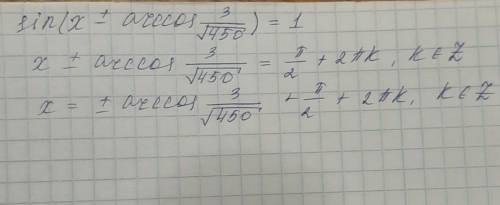 sin(x ± arccos 3/√450) = 1
x ± arccos 3/√450 = π/2 + 2πk, k ∈ Z
x = ± arccos 3/√450 + π/2 + 2πk, k ∈ Z